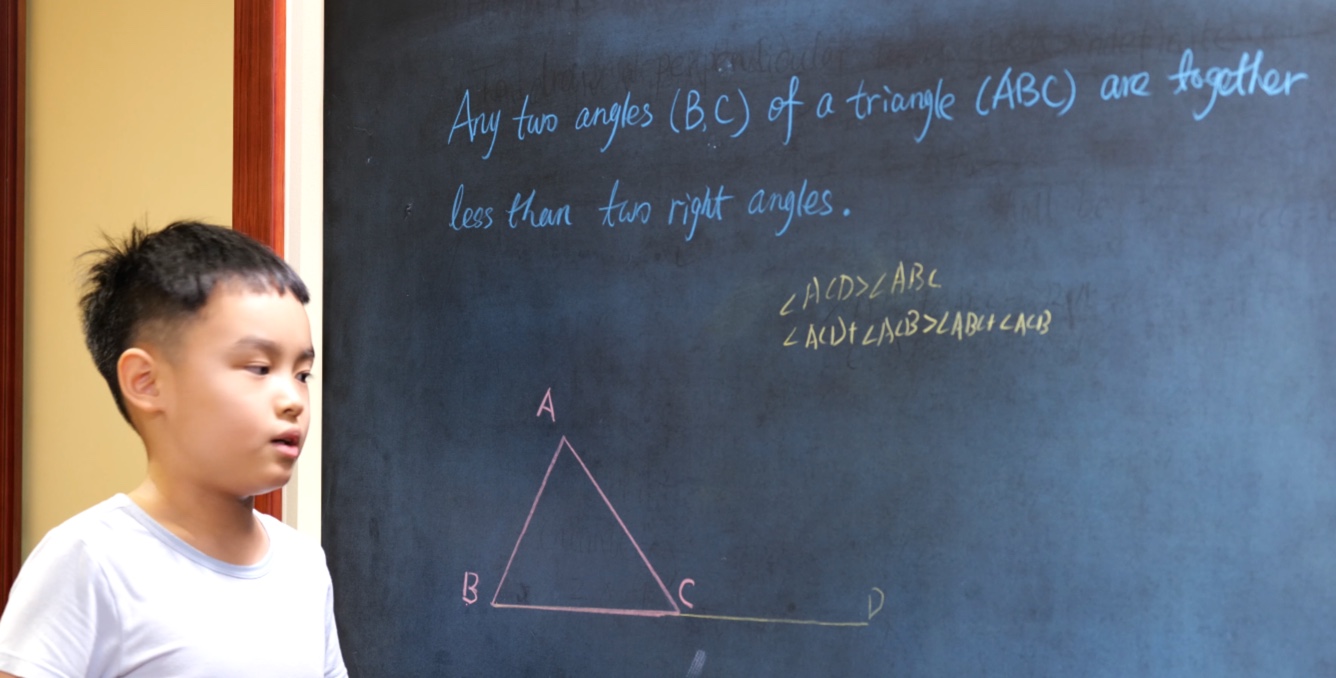 Any two angles (B,C) of a triangle (ABC) are together
less than two right angles.
∠ACD>∠ABC
∠ACD+∠ACB>∠ABC+∠ACB
A
B
C
D